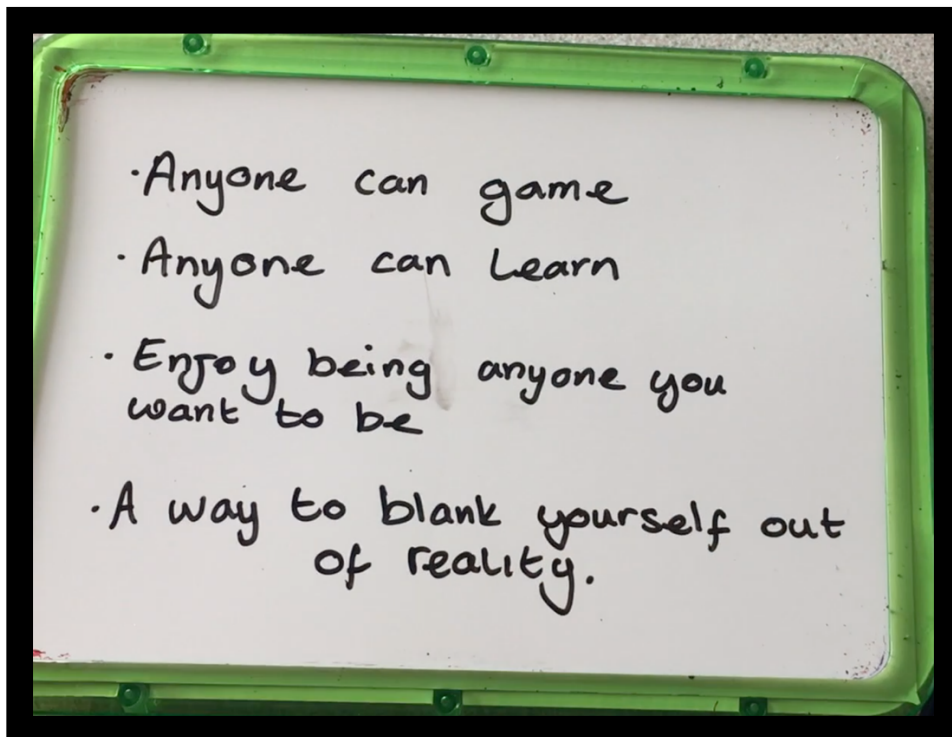 ·Anyone can game
·Anyone can Learn
·Enjoy being anyone you
want to be
·A way to blank yourself out
of reality.